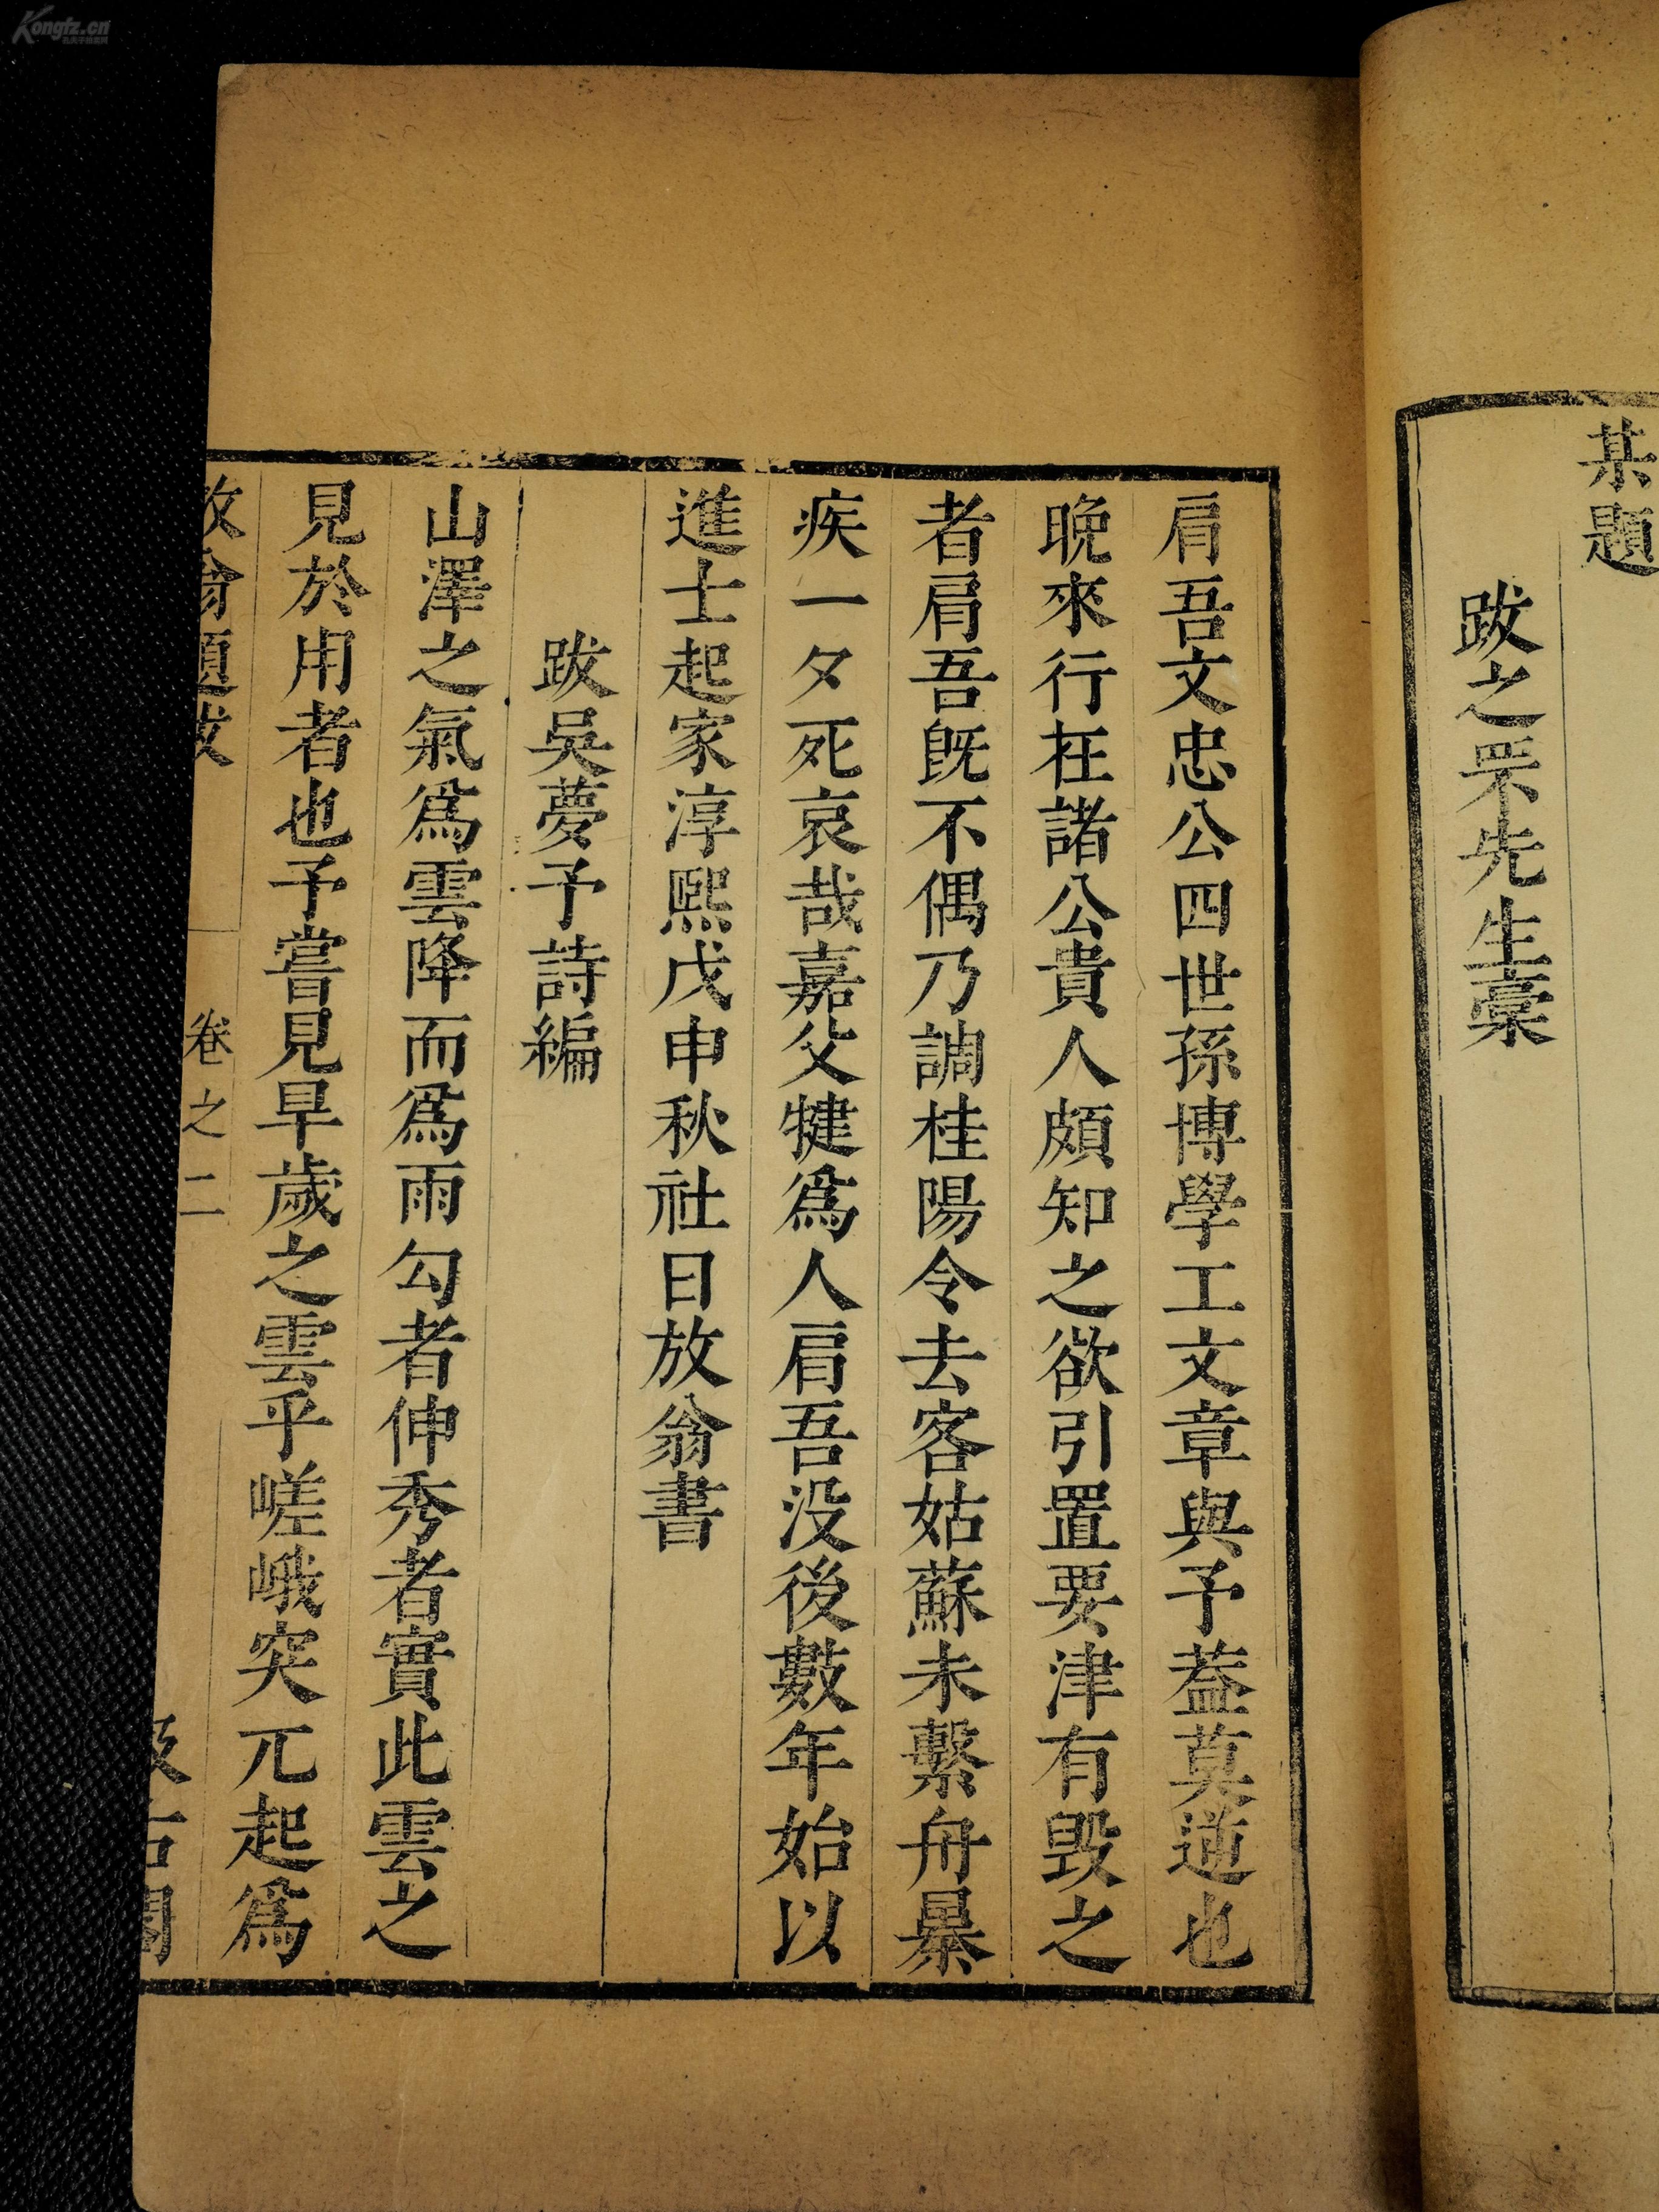 某題
跋之罘先生稾
肩吾文忠公四世孫博學工文章與予蓋莫逆也
晚來行在諸公貴人頗知之欲引置要津有毀之
者肩吾旣不偶乃調桂陽令去客姑蘇未繫舟暴
疾一夕死哀哉嘉父犍爲人肩吾没後數年始以
進士起家淳熙戊申秋社日放翁書
跋吳夢予詩編
山澤之氣爲雲降而爲雨勾者伸秀者實此雲之
見於用者也予嘗見旱歲之雲乎嵯峨突兀起爲
放翁題跋 卷之二 汲古閣
Kongfz.cn